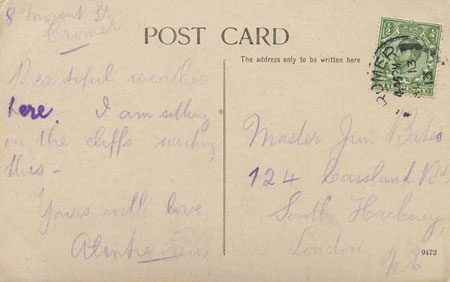 8 Mount St
Cromer
POST CARD
The address only to be written here
Beautiful weather
here. I am sitting
on the cliffs writing
this -
Yours with love
Auntie
Master Jim
124 Cassland Rd
South Hackney
London, N.E
CROMER
13
9473